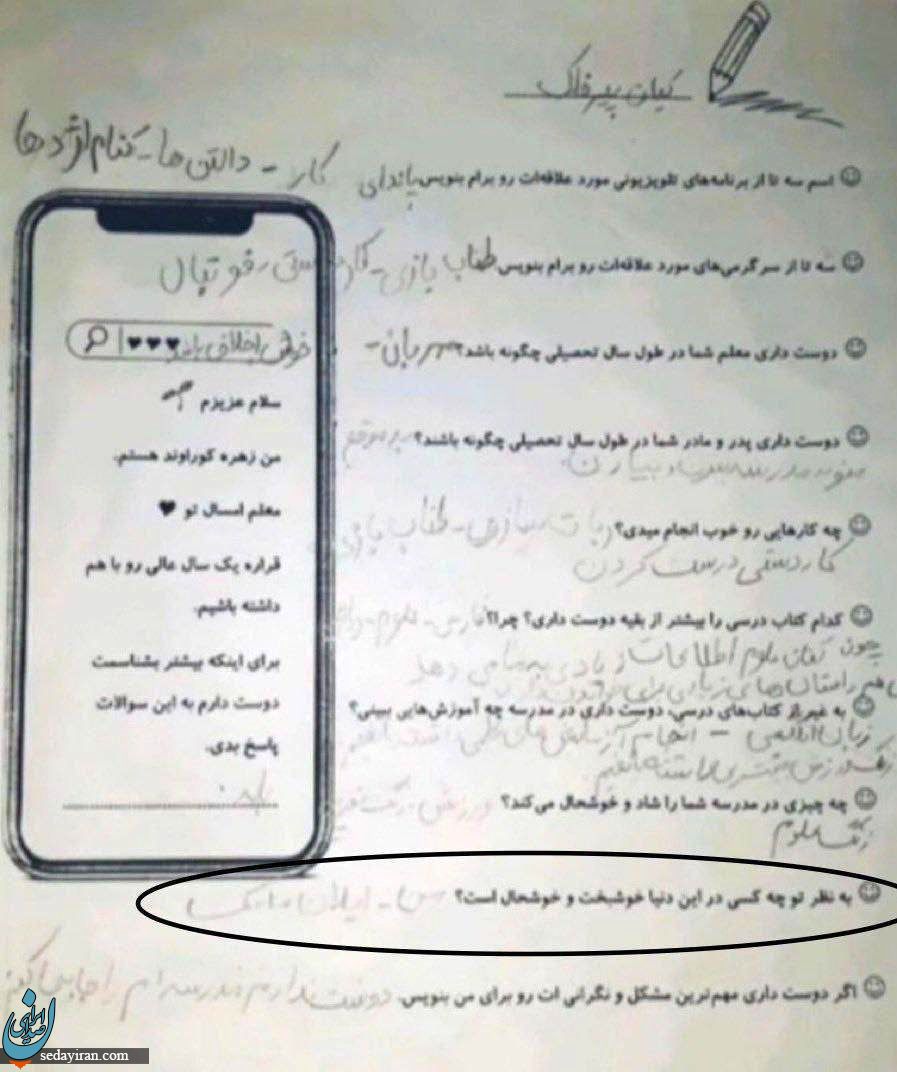 کیان پیرفلک
اسم سه تا از برنامه‌های تلویزیونی مورد علاقه‌ات رو برام بنویس. پاندای
کار - دالتن ها - کنام اژدها
سه تا از سرگرمی‌های مورد علاقه‌ات رو برام بنویس طناب بازی - کاردستی - فوتبال
دوست داری معلم شما در طول سال تحصیلی چگونه باشد؟ مهربان -
خوش اخلاق باشد
دوست داری پدر و مادر شما در طول سال تحصیلی چگونه باشند؟ به موقع
چه کارهایی رو خوب انجام میدی؟ ربات سازی - طناب بازی
کاردستی درست کردن
کدام کتاب درسی را بیشتر از بقیه دوست داری؟ چرا؟ فارسی - علوم -
چون کتاب علوم اطلاعات زیادی به ما می دهد
به غیر از کتاب‌های درسی، دوست داری در مدرسه چه آموزش‌هایی ببینی؟
زبان انگلیسی - انجام آزمایش های علمی
زنگ ورزش بیشتری داشته باشیم
چه چیزی در مدرسه شما را شاد و خوشحال می‌کند؟ ورزش -
زنگ علوم
به نظر تو چه کسی در این دنیا خوشبخت و خوشحال است؟ من - ایلان ماسک
اگر دوست داری مهم‌ترین مشکل و نگرانی ات رو برای من بنویس. دوست ندارم مدرسه ام را
سلام عزیزم
من زهره کوراوند هستم.
معلم امسال تو ♥
قراره یک سال عالی رو با هم
داشته باشیم.
برای اینکه بیشتر بشناسمت
دوست دارم به این سوالات
پاسخ بدی.
صدای ایران
sedayiran.com